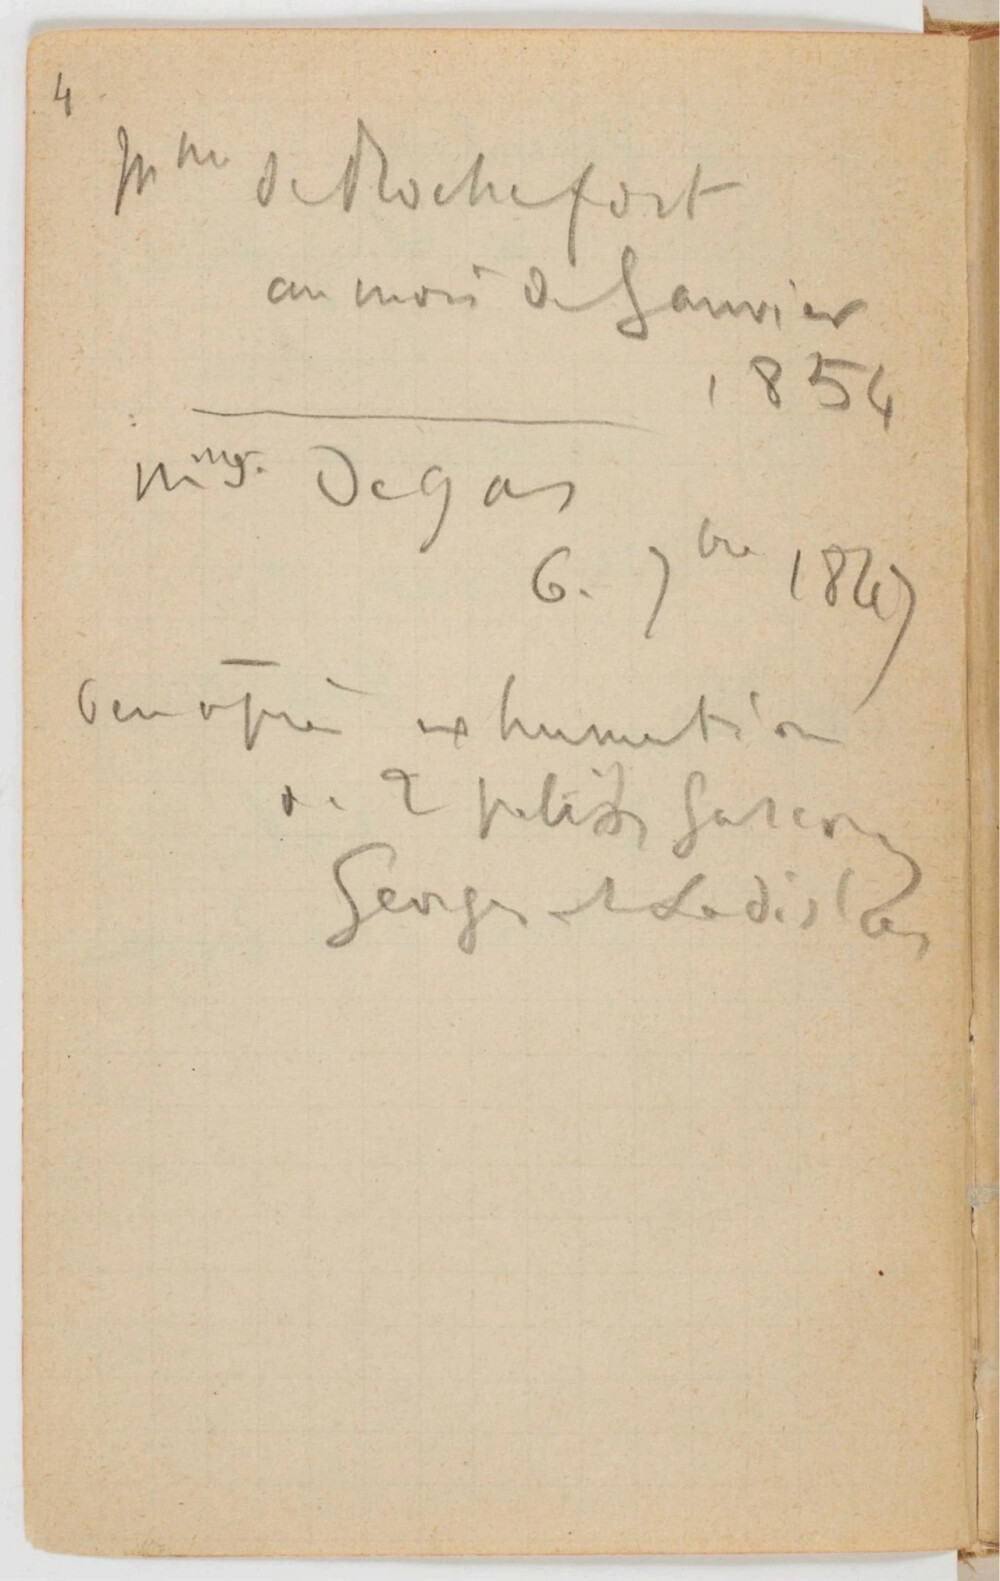 4
Mme de Rochefort
au mois de Janvier
1854
Degas
6. 7bre 1847
exhumation
de 2 petits garçons
Georges et Ladislas